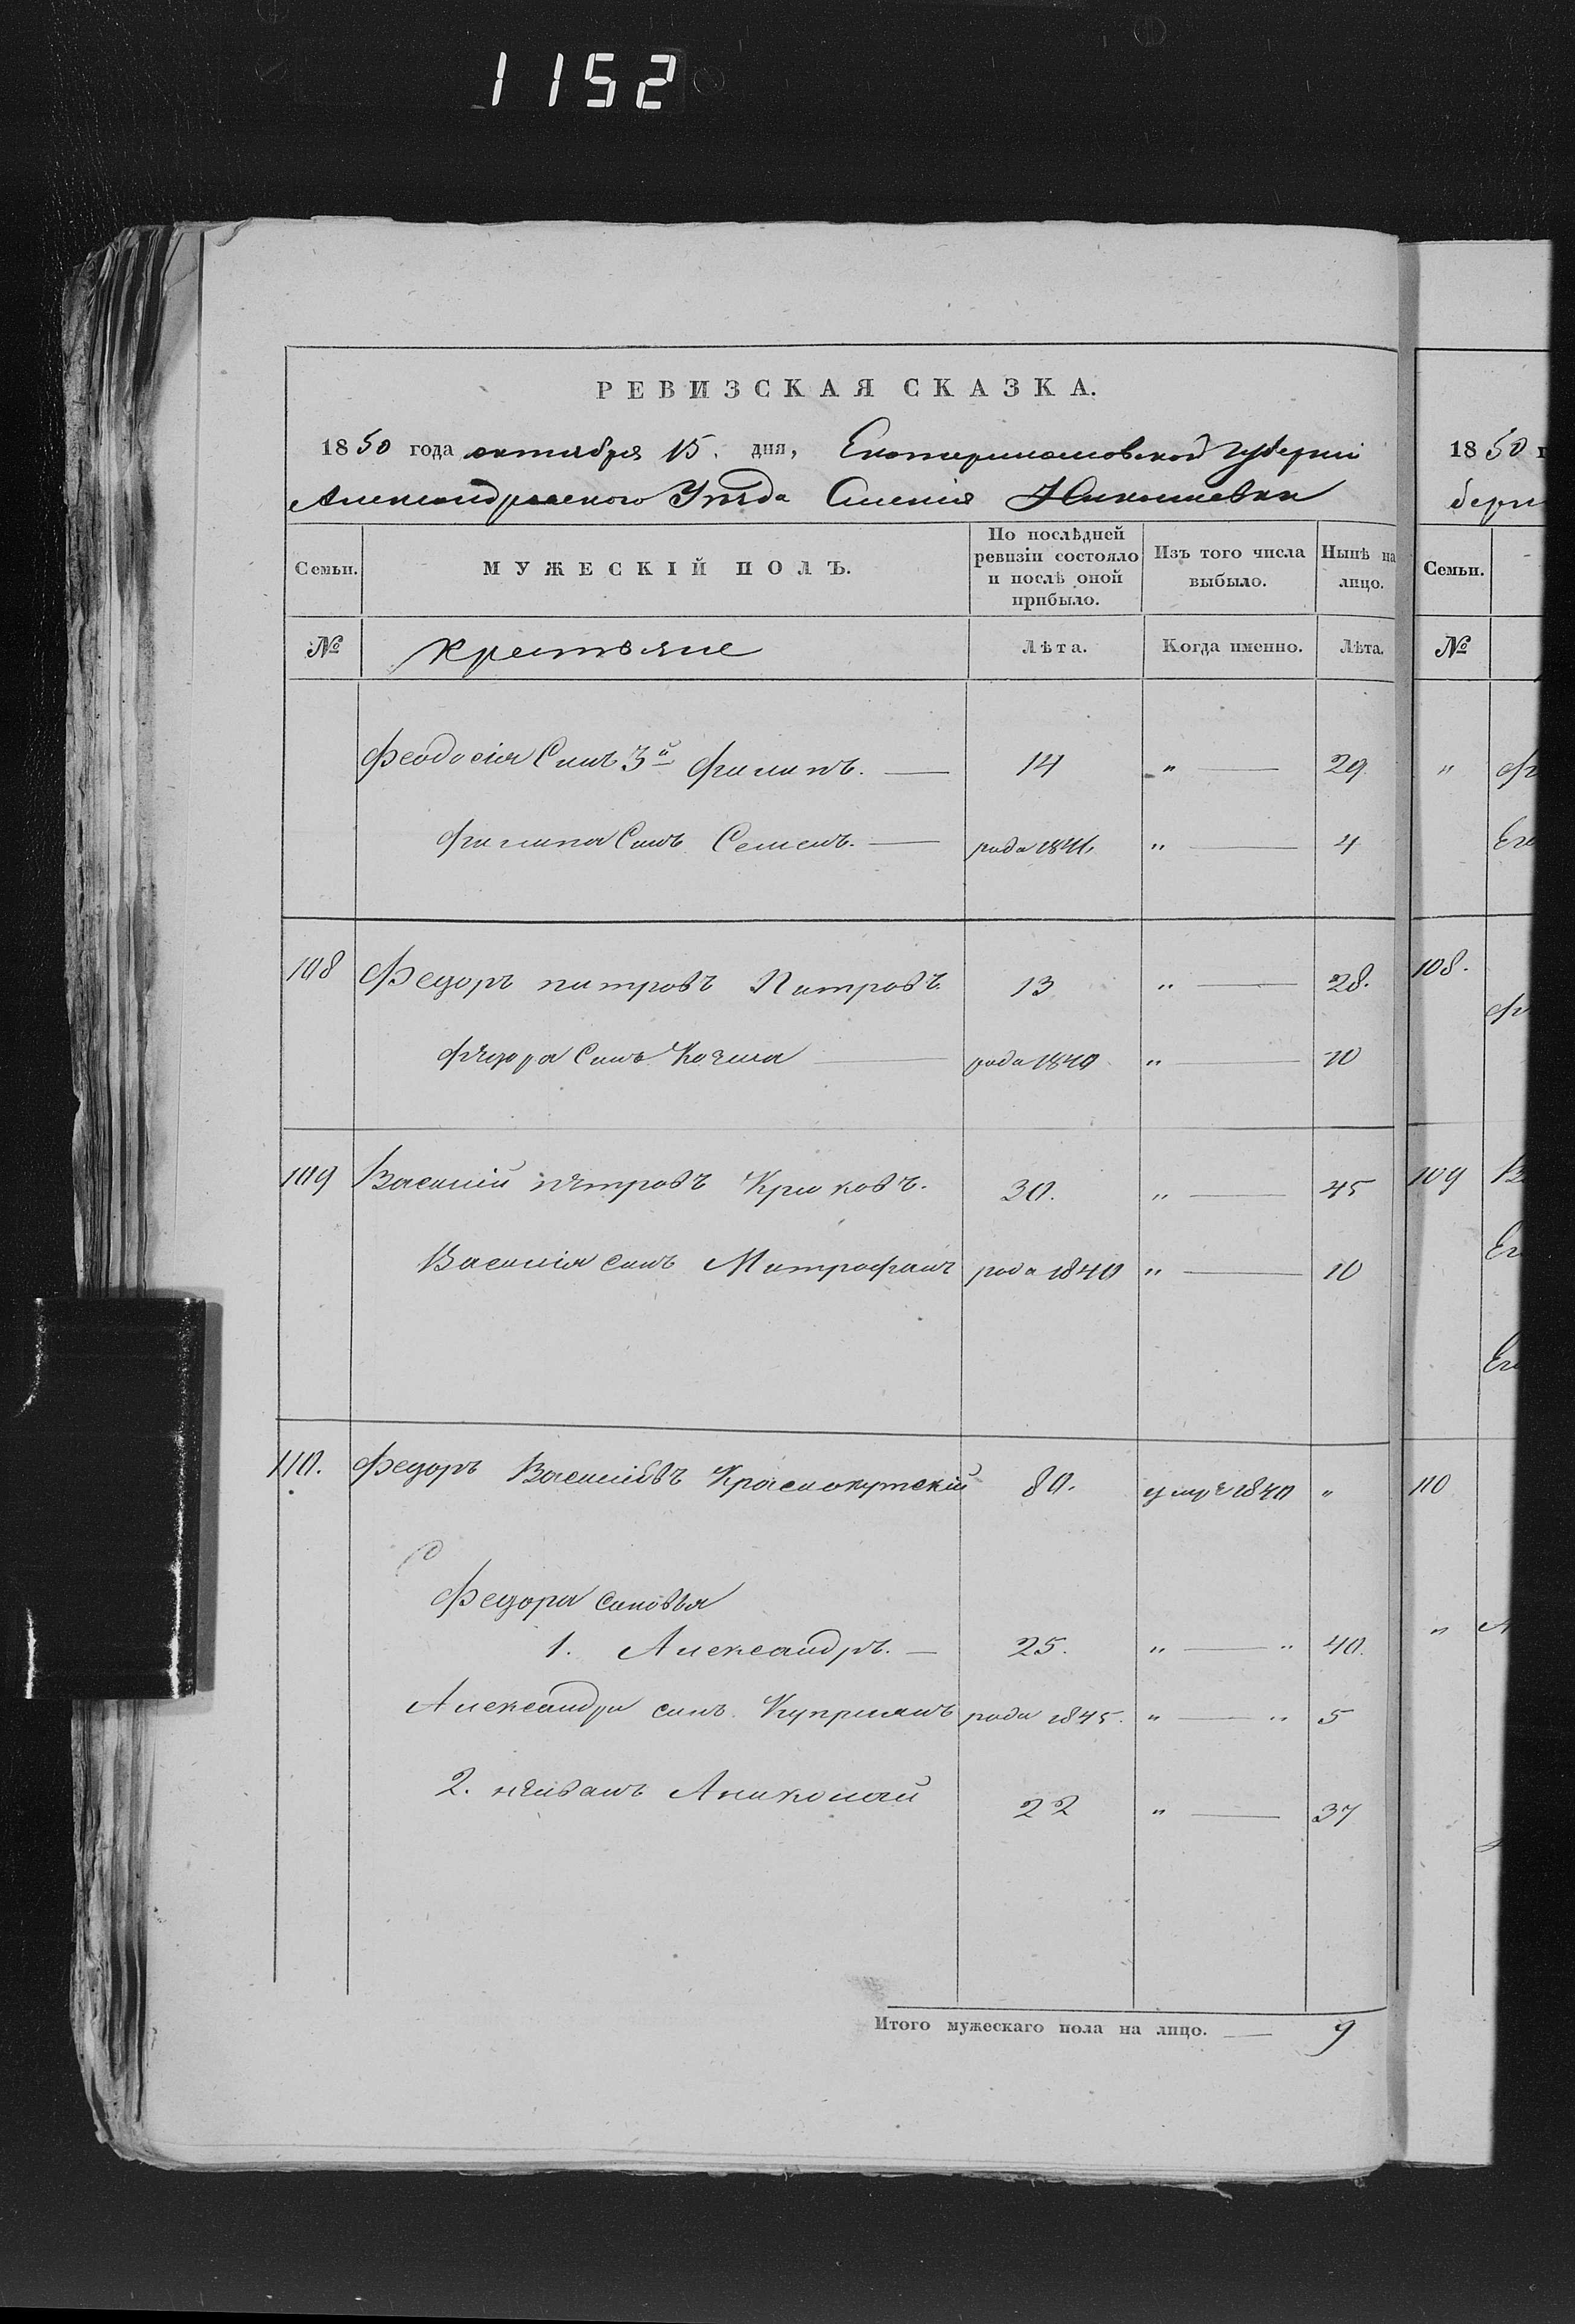 1152
РЕВИЗСКАЯ СКАЗКА.
1850 года октября 15. дня, Екатеринославской губерніи
Александровского Уѣзда Имения
Семьи. МУЖЕСКІЙ ПОЛЪ. По послѣдней ревизіи состояло и послѣ оной прибыло. Изъ того числа выбыло. Нынѣ на лицо.
№ крестьяне Лѣта. Когда именно. Лѣта.
Феодосія Синъ 3й Филипъ. — 14 " — 29
Филипа Синъ Семенъ. — рода " — 4
108 Федоръ питровъ Питровъ 13 " — 28.
Фѣдора Синъ Козма — рода 1840 " — 10
109 Василий пѣтровъ Крюковъ. 30. " — 45
Василія синъ Митрофанъ рода 1840 " — 10
110. Федоръ Василіевъ Краснокутскій 80. умре 1840 "
Федора синовья
1. Александръ. — 25. " — " 40.
Александра синъ Куприянъ рода 1845. " — " 5
2. 22 " — 37
Итого мужескаго пола на лицо. — 9
1850 г
бери
Семьи.
№
"
Ег
108.
109 В
Ег
Ег
110
" А